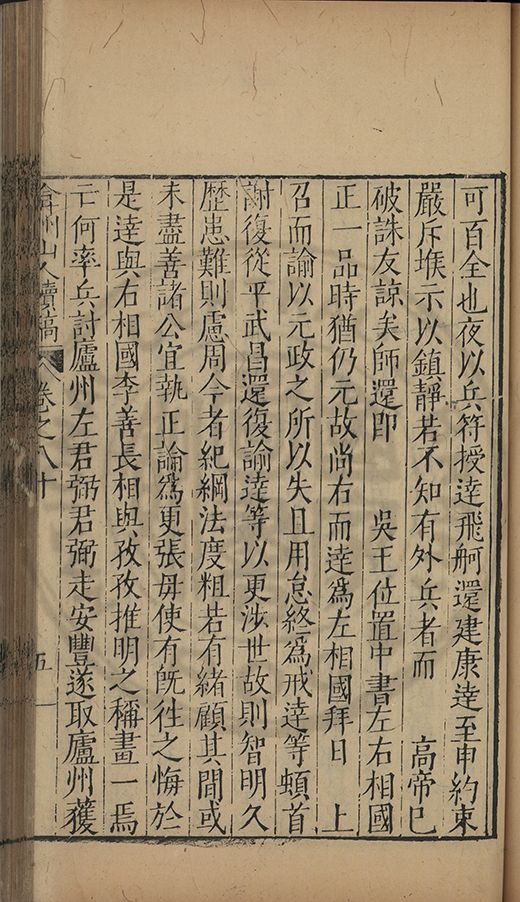 可百全也夜以兵符授達飛舸還建康達至申約束
嚴斥堠示以鎮靜若不知有外兵者而　高帝已
破誅友諒矣師還即　吳王位置中書左右相國
正一品時猶仍元故尚右而達爲左相國拜日　上
召而諭以元政之所以失且用怠終爲戒達等頓首
謝復從平武昌還復諭達等以更涉世故則智明久
歷患難則慮周今者紀綱法度粗若有緒顧其間或
未盡善諸公宜執正論爲更張毋使有旣徃之悔於
是達與右相國李善長相與孜孜推明之稱畫一焉
亡何率兵討廬州左君弼君弼走安豐遂取廬州獲
弇州山人續稿　卷之八十　五